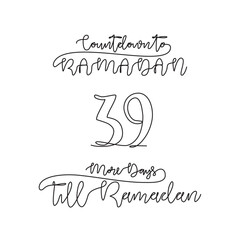 Countdown to
RAMADAN
39
More Days
Till Ramadan